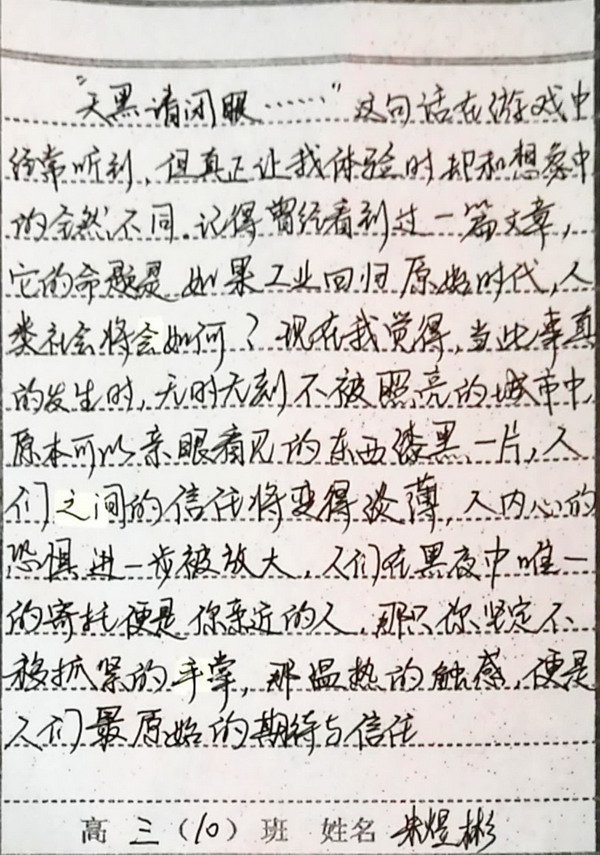 "天黑请闭眼……"这句话在游戏中
经常听到,但真正让我体验时却和想象中
的全然不同.记得曾经看到过一篇文章,
它的命题是如果工业回归原始时代,人
类社会将会如何?现在我觉得,当此事真
的发生时,无时无刻不被照亮的城市中,
原本可以亲眼看见的东西漆黑一片,人
们之间的信任将变得淡薄,人内心的
恐惧进一步被放大,人们在黑夜中唯一
的寄托便是你亲近的人,那只你坚定不
移抓紧的手掌,那温热的触感,便是
人们最原始的期待与信任
高三(10)班 姓名 朱煜彬